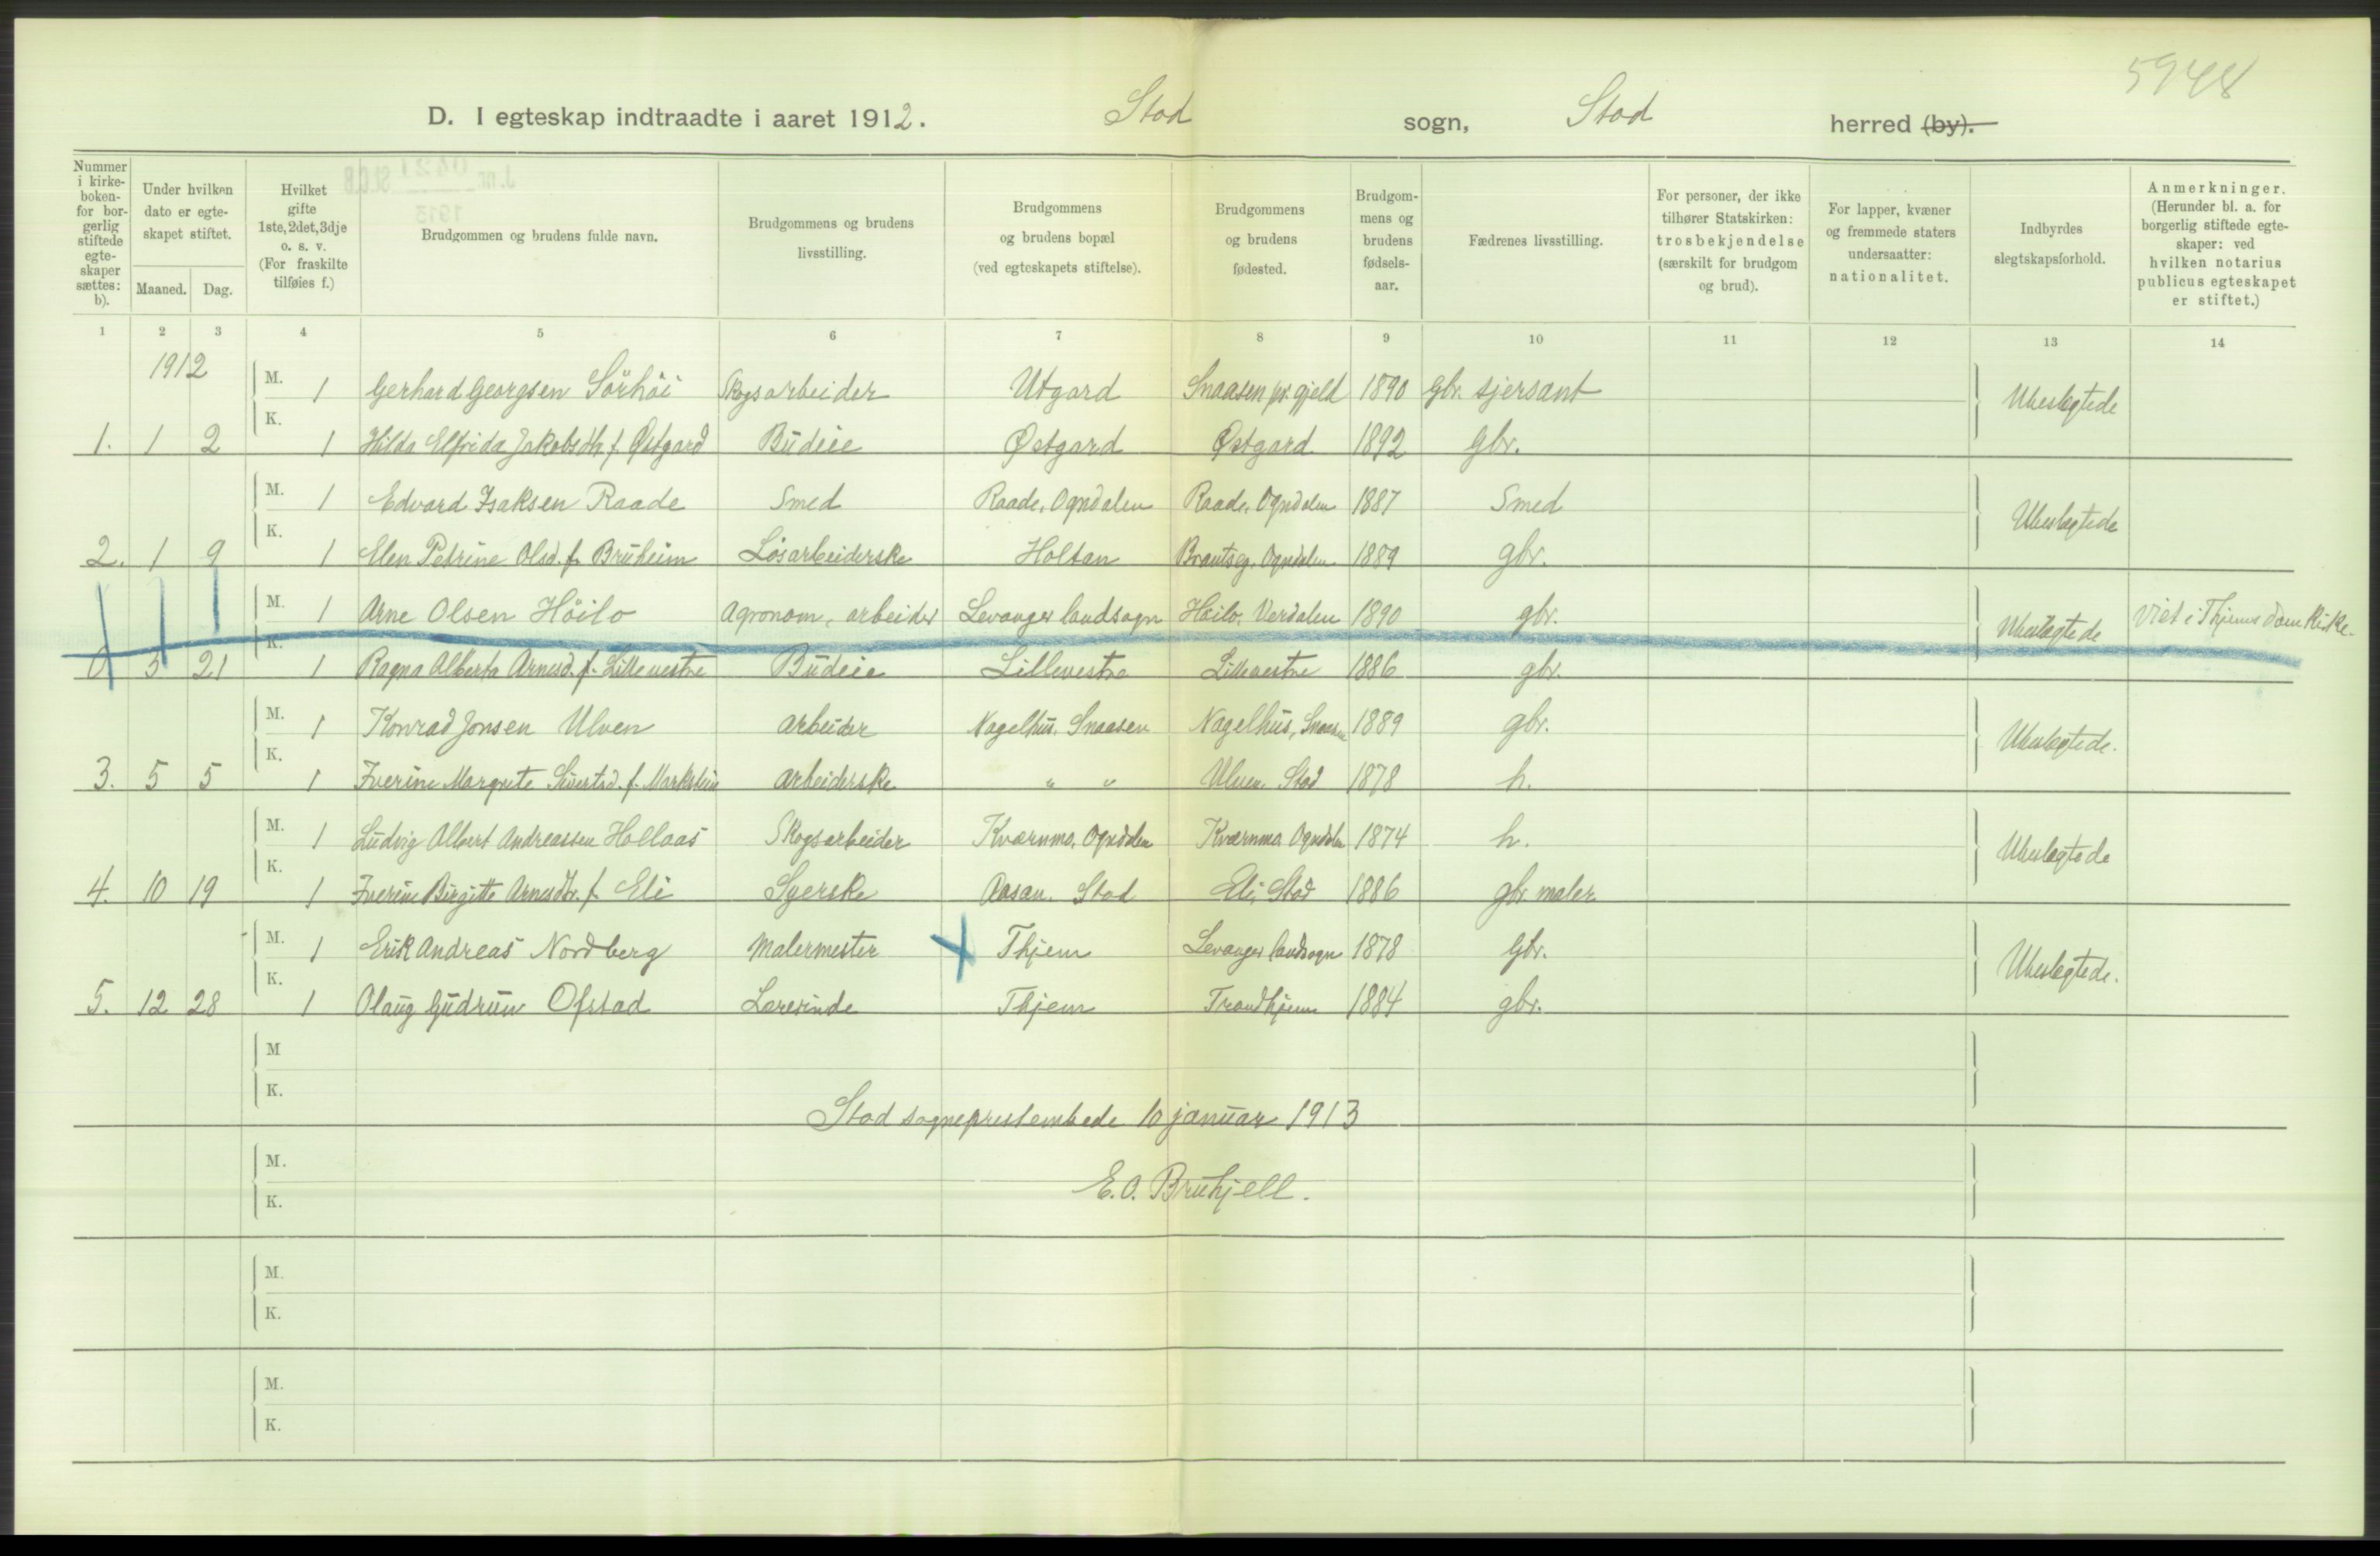 5948
D. I egteskap indtraadte i aaret 1912. Stod sogn, Stod herred (by).
Nummer i kirkeboken- for borgerlig stiftede egteskaper sættes: b).
Under hvilken dato er egteskapet stiftet.
Maaned. Dag.
Hvilket gifte 1ste, 2det, 3dje o. s. v. (For fraskilte tilføies f.)
Brudgommen og brudens fulde navn.
Brudgommens og brudens livsstilling.
Brudgommens og brudens bopæl (ved egteskapets stiftelse).
Brudgommens og brudens fødested.
Brudgommens og brudens fødselsaar.
Fædrenes livsstilling.
For personer, der ikke tilhører Statskirken: trosbekjendelse (særskilt for brudgom og brud).
For lapper, kvæner og fremmede staters undersaatter: nationalitet.
Indbyrdes slegtskapsforhold.
Anmerkninger. (Herunder bl. a. for borgerlig stiftede egteskaper: ved hvilken notarius publicus egteskapet er stiftet.)
1 2 3 4 5 6 7 8 9 10 11 12 13 14
1912
M. 1 Gerhard Georgsen Sörhöi Skogsarbeider Utgard Snaasen pr.gjeld 1890 Gbr. sjersant Ubeslegtede
1. 1 2 K. 1 Hilda Elfrida Jakobsdtr f. Østgard Budeie Østgard Østgard 1892 Gbr.
M. 1 Edvard Isaksen Raade Smed Raade, Ogndalen Raade, Ogndalen 1887 Smed Ubeslegtede
2. 1 9 K. 1 Elen Petrine Olsd. f. Bruheim Løsarbeiderske Holtan Brautseg, Ogndalen 1889 gbr.
M. 1 Arne Olsen Höilo Agronom, arbeider Levanger landsogn Höilo, Verdalen 1890 gbr. Ubeslegtede Viet i Thjems Domkirke.
0 5 21 K. 1 Ragna Alberta Arnesd. f. Lillevestre Budeie Lillevestre Lillevestre 1886 gbr.
M. 1 Konrad Jonsen Ulven arbeider Nagelhus, Snaasen Nagelhus, Snaasen 1889 gbr. Ubeslegtede.
3. 5 5 K. 1 Iverine Margrete Sivertsd. f. arbeiderske " " Ulven, Stod 1878 h.
M. 1 Ludvig Albert Andreassen Hollaas Skogsarbeider Kværnmo, Ogndalen Kværnmo, Ogndalen 1874 h. Ubeslegtede
4. 10 19 K. 1 Iverine Birgitte Arnesdtr. f. Eli Syerske Aasan, Stod Eli, Stod 1886 gbr. maler
M. 1 Erik Andreas Nordberg Malermester Thjem Levanger landsogn 1878 Gbr. Ubeslegtede.
5. 12 28 K. 1 Olaug Gudrun Ofstad Lærerinde Thjem Trondhjem 1884 gbr.
M
K.
Stod sogneprestembede 10 januar 1913
M.
K.
E. O. Bruhjell.
M.
K.
M.
K.